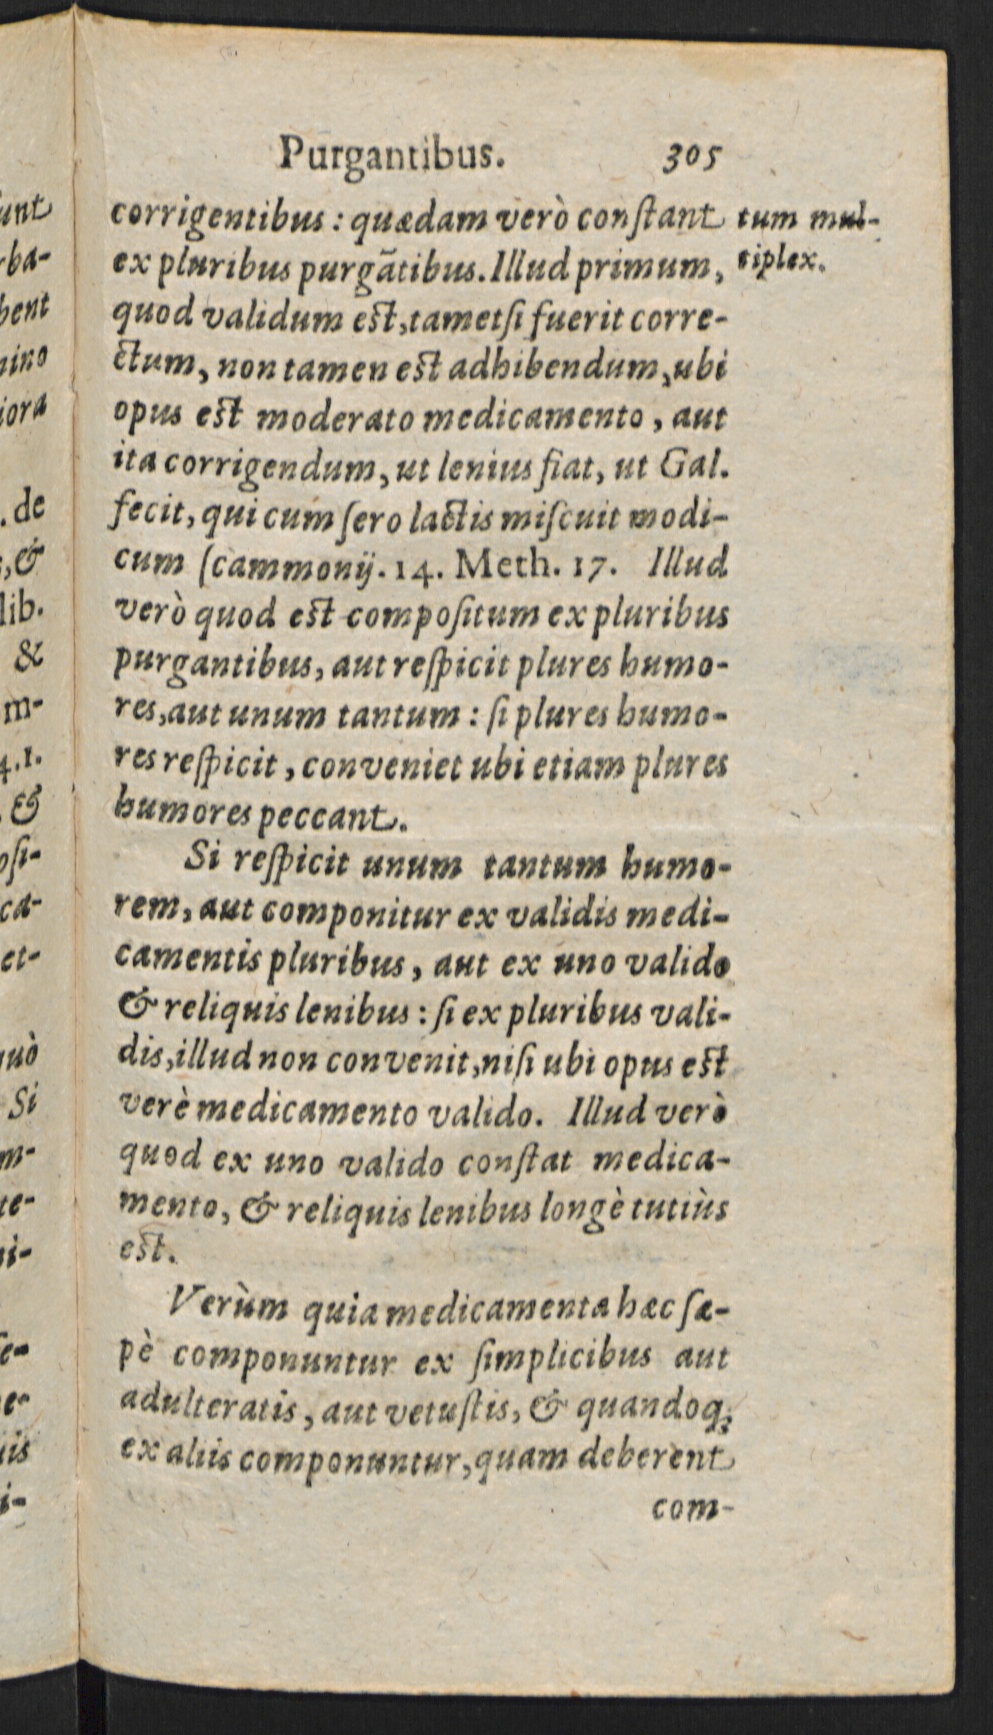 Purgantibus. 305
corrigentibus : quædam verò constant
tum mul-
tiplex.
ex pluribus purgātibus. Illud primum,
quod validum est, tametsi fuerit corre-
ctum, non tamen est adhibendum, ubi
opus est moderato medicamento, aut
ita corrigendum, ut lenius fiat, ut Gal.
fecit, qui cum sero lactis miscuit modi-
cum scammonij. 14. Meth. 17. Illud
verò quod est compositum ex pluribus
purgantibus, aut respicit plures humo-
res, aut unum tantum : si plures humo-
res respicit, conveniet ubi etiam plures
humores peccant.
Si respicit unum tantum humo-
rem, aut componitur ex validis medi-
camentis pluribus, aut ex uno valido
& reliquis lenibus : si ex pluribus vali-
dis, illud non convenit, nisi ubi opus est
verè medicamento valido. Illud verò
quod ex uno valido constat medica-
mento, & reliquis lenibus longè tutiùs
est.
Verùm quia medicamenta hæc sæ-
pè componuntur ex simplicibus aut
adulteratis, aut vetustis, & quandoq;
ex aliis componuntur, quam deberent
com-
unt
rba-
bent
nino
iora
. de
s, &
lib.
&
m-
4.1.
. &
osi-
ca-
et-
quò
Si
m-
te-
ni-
se-
ne-
uis
i-